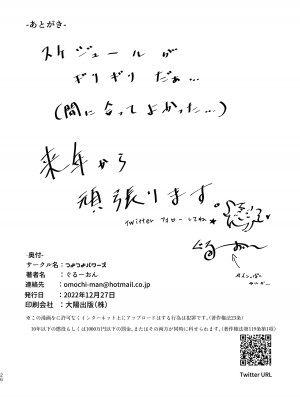 -あとがき-
スケジュールが
ギリギリだぁ…
(間に合ってよかった…)
来年から
頑張ります。
twitter フォローしてね
-奥付-
サークル名：つよつよパワーズ
著者名：ぐるーおん
連絡先：omochi-man@hotmail.co.jp
発行日：2022年12月27日
印刷会社：大陽出版（株）
※この漫画をに許可なくインターネット上にアップロードはする行為は犯罪です。（著作権法23条）
10年以下の懲役もしくは1000万円以下の罰金、またはその両方が同時に科せられます。（著作権法第119条第1項）
Twitter URL